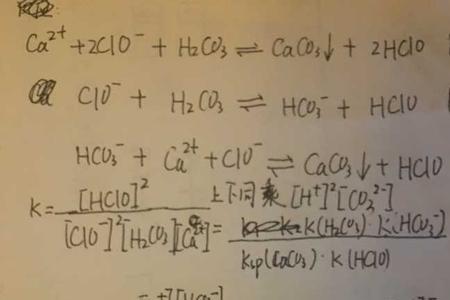 Ca²⁺ + 2ClO⁻ + H₂CO₃ ⇌ CaCO₃↓ + 2HClO
ClO⁻ + H₂CO₃ ⇌ HCO₃⁻ + HClO
HCO₃⁻ + Ca²⁺ + ClO⁻ ⇌ CaCO₃↓ + HClO
K = [HClO]² / [ClO⁻]²[H₂CO₃][Ca²⁺] 上下同乘 [H⁺]²[CO₃²⁻]
= K(H₂CO₃)·K(HCO₃⁻) / Ksp(CaCO₃)·K(HClO)